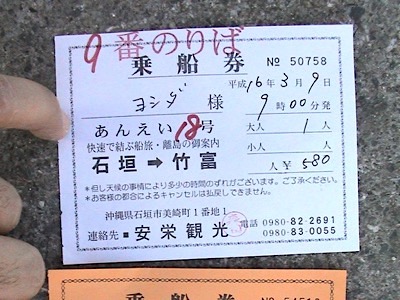 9番のりば
乗船券
№ 50758
平成16年3月9日
ヨシダ 様
9時00分発
あんえい18号
大人 1人
快速で結ぶ船旅・離島の御案内
小人 人
石垣➡竹富
人¥580
*但し天候の事情により多少の時間のずれがございます。ご了承ください。
*お客様の都合によるキャンセルは払戻しできません。
沖縄県石垣市美崎町1番地1
連絡先 ■ 安栄観光
電話 0980-82-2691
0980-83-0055
乗船券
№